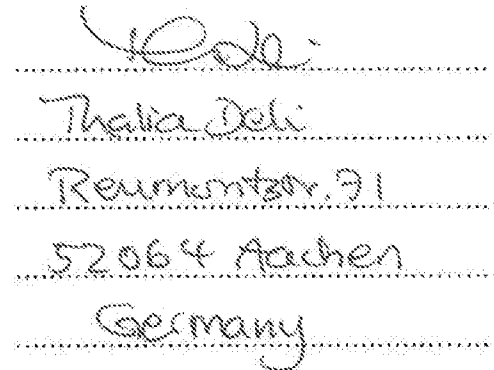 Thalia Deli
Reumontstr. 71
52064 Aachen
Germany